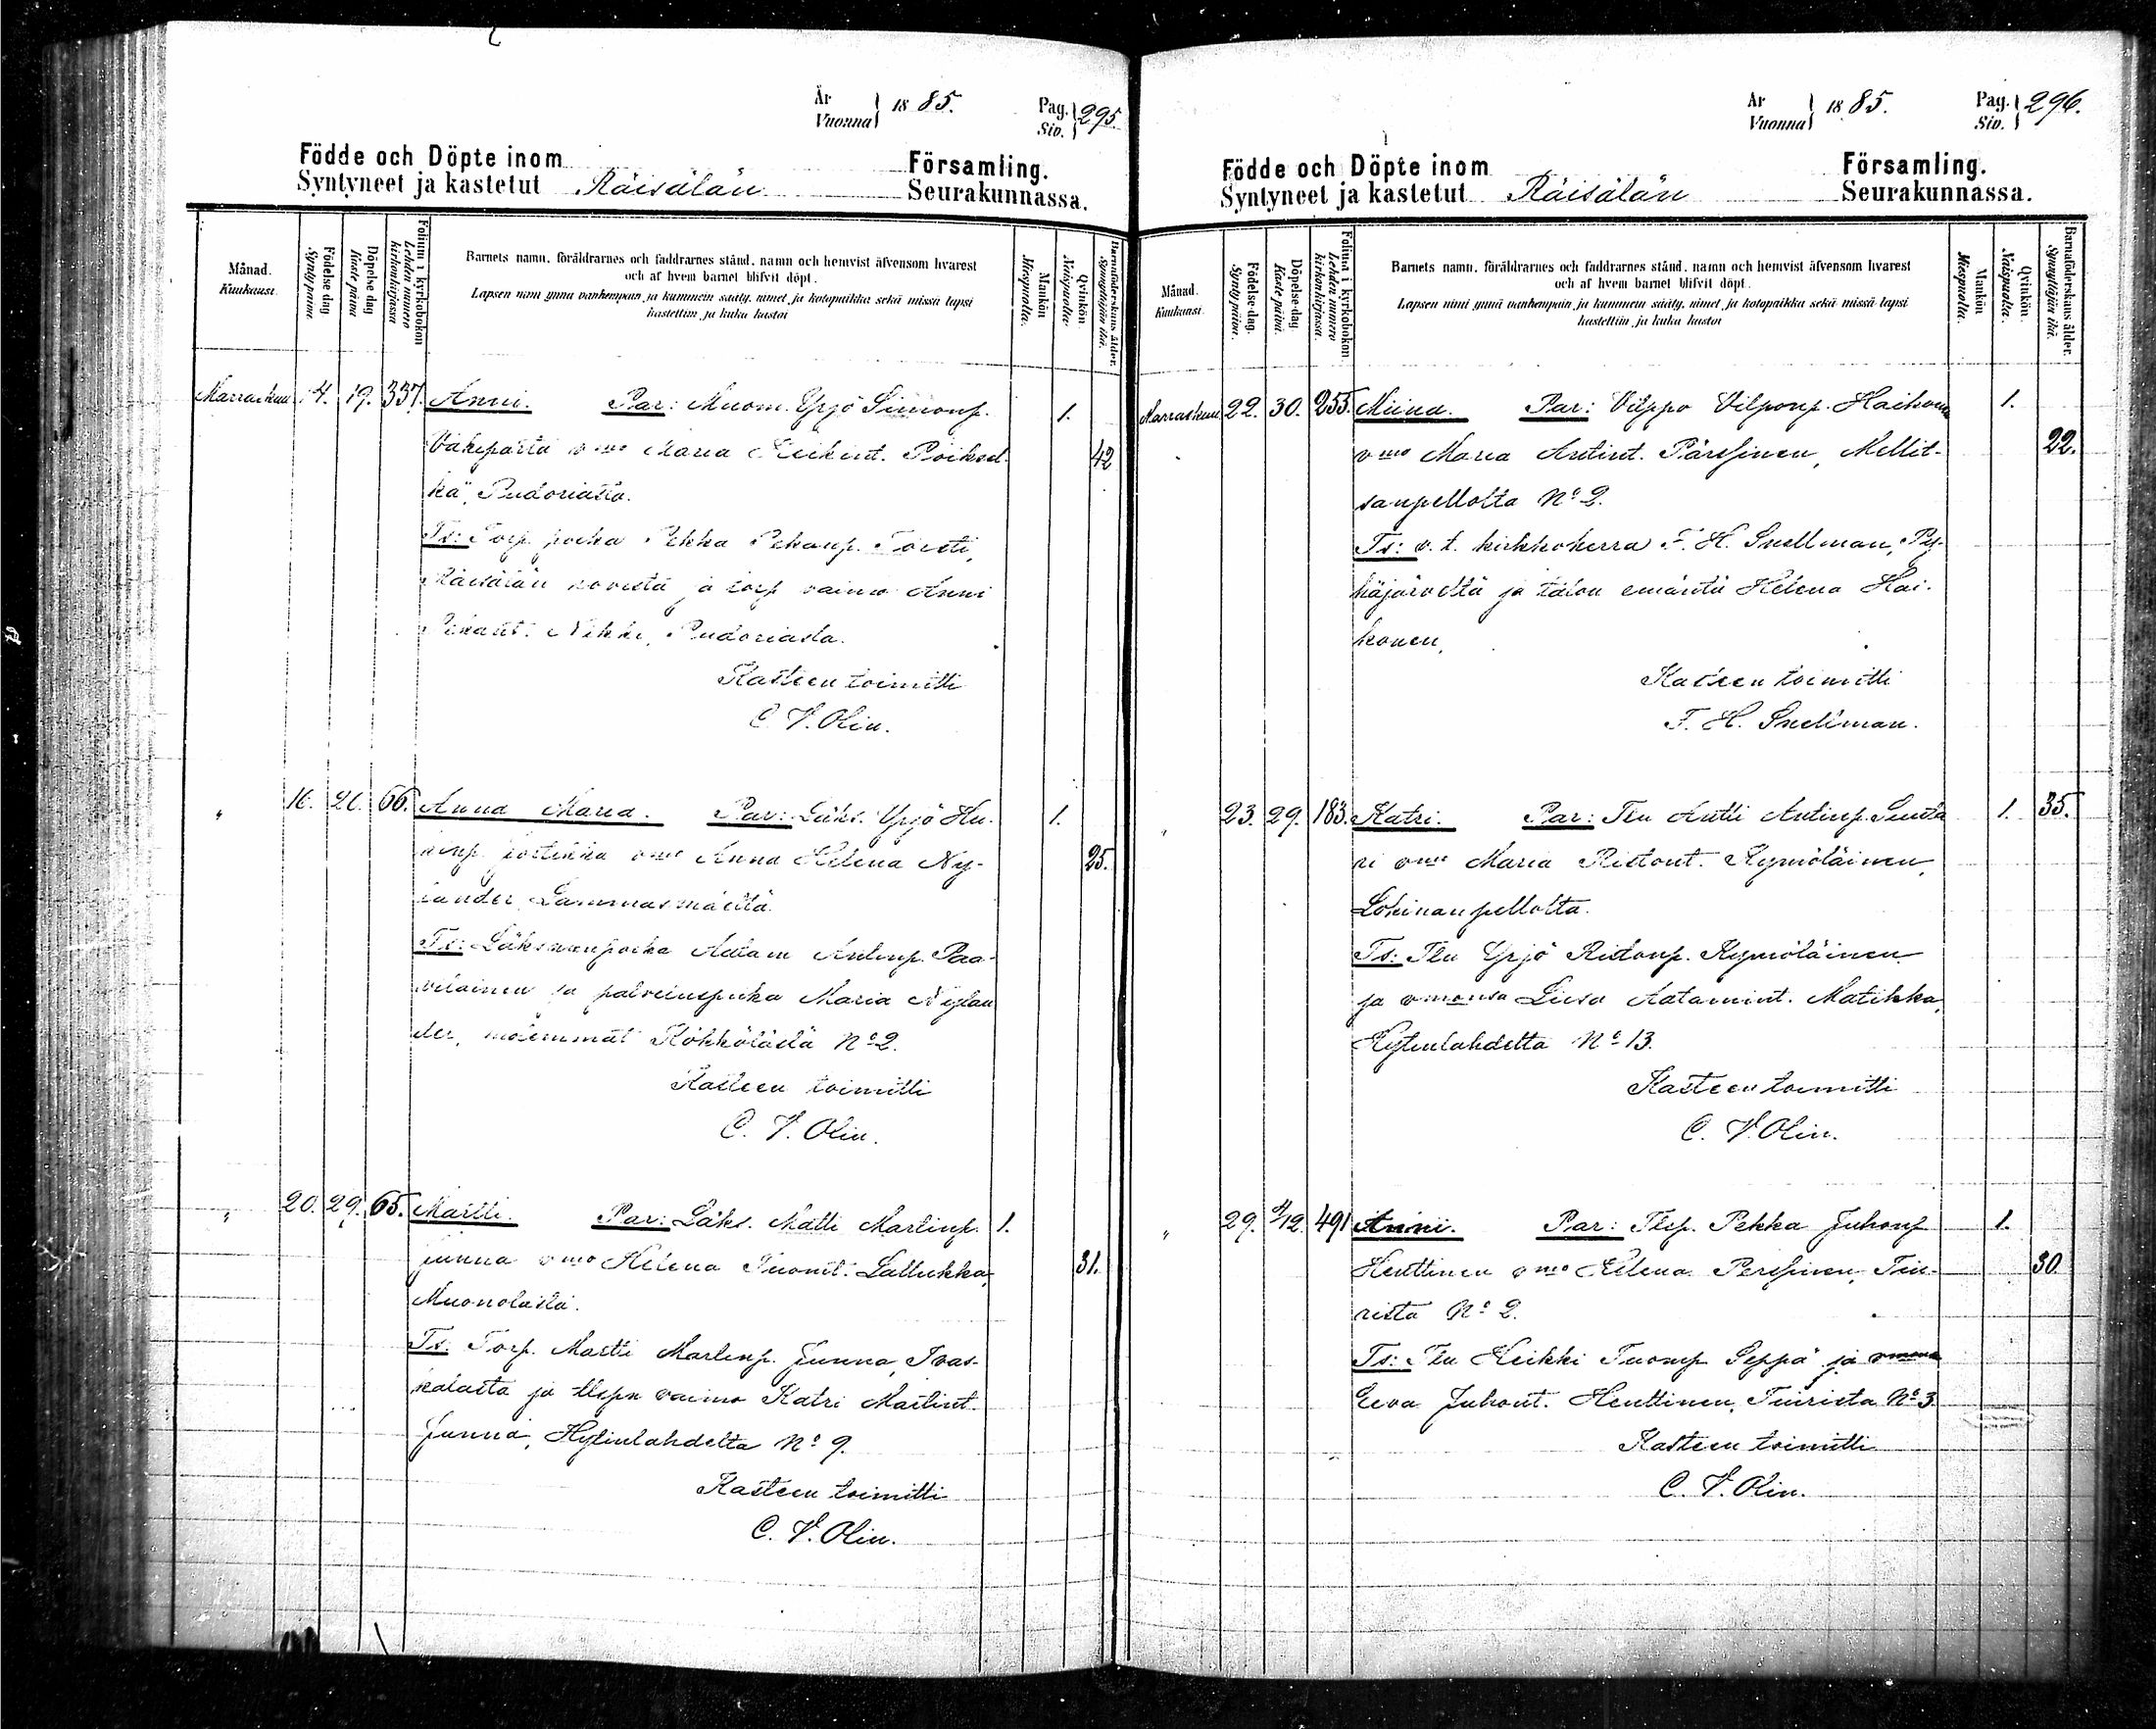 År
Vuonna } 18 85.
Pag.
Siv. } 295.
Födde och Döpte inom Församling.
Syntyneet ja kastetut Räisälän Seurakunnassa.
Månad.
Kuukausi.
Födelse dag
Synty päivä
Döpelse dag
Kaste päivä
Folium i kyrkoboken
Lehden numero kirkonkirjassa
Barnets namn, föräldrarnes och faddrarnes stånd, namn och hemvist äfvensom hvarest
och af hvem barnet blifvit döpt.
Lapsen nimi ynnä vanhempain ja kummein sääty, nimet ja kotopaikka sekä missä lapsi
kastettiin ja kuka kastoi
Mankön
Miespuolia.
Qvinkön.
Naispuolia.
Barnaföderskans ålder.
Synnyttäjän ikä.
Marraskuu 4. 19. 337. Anni. Par: Muom. Yrjö Simonp. 1.
Väkipärtä vmo Maria Heikint. 42
kä, Pudoriasta.
Ts: Torp. poika Pekka Pekanp. Torsti,
Räisälän kovista ja torp vaimo Anni
Nikki, Pudoriasta.
Kasteen toimitti
C. V. Olin.
" 16. 20. 66. Anna Maria. Par: Läks. Yrjö Hu- 1.
vmo Anna Helena Ny- 25.
lander Lammasmäeltä.
Ts: Läksmanpoika Adam Antinp. Paa-
vilainen ja palveluspiika Maria Nylan
der, molemmat Kökkölästä No 2.
Kasteen toimitti
C. V. Olin.
" 20. 29. 65. Martti. Par: Läks. Matti Martinp. 1.
Junna vmo Helena Tuomt. Lallukka, 31.
Muonolasta.
Ts: Torp. Martti Martinp. Junna, Ivas-
kalasta ja tlspn vaimo Katri Martint.
Junna, Hytinlahdelta No 9.
Kasteen toimitti
C. V. Olin.
År
Vuonna } 18 85.
Pag.
Siv. } 296.
Födde och Döpte inom Församling.
Syntyneet ja kastetut Räisälän Seurakunnassa.
Månad.
Kuukausi.
Födelse-dag.
Synty päivä.
Döpelse-dag
Kaste päivä.
Folium i kyrkoboken.
Lehden numero kirkonkirjassa.
Barnets namn, föräldrarnes och faddrarnes stånd, namn och hemvist äfvensom hvarest
och af hvem barnet blifvit döpt.
Lapsen nimi ynnä vanhempain ja kummein sääty, nimet ja kotopaikka sekä missä lapsi
kastettiin ja kuka kastoi
Mankön
Miespuolia.
Qvinkön.
Naispuolia.
Barnaföderskans ålder.
Synnyttäjän ikä.
Marraskuu 22. 30. 255. Miina. Par: Vilppo Vilponp. Haikonen 1.
vmo Maria Antint. Pärssinen, Mellit- 22.
sanpellolta No 2.
Ts: v. t. kirkkoherra F. H. Snellman, Py-
häjärveltä ja talon emäntä Helena Hai-
konen,
Kasteen toimitti
F. H. Snellman.
" 23. 29. 183. Katri. Par: Tln Antti Antinp. Sunta 1. 35.
ri vmo Maria Ristont. Kymöläinen,
Lökinänpellolta.
Ts: Tln Yrjö Ristonp. Kymöläinen
ja vmonsa Liisa Aatamint. Matikka,
Hytinlahdelta No 13.
Kasteen toimitti
C. V. Olin.
" 29. 4/12. 491 Anni. Par: Tlsp. Pekka Juhonp 1.
Henttinen vmo Helena Perssinen, Tiu- 30
rista No 2.
Ts: Tln Heikki Tuomp Seppä ja vmonsa
Eeva Juhont. Henttinen, Tiurista No 3.
Kasteen toimitti
C. V. Olin.